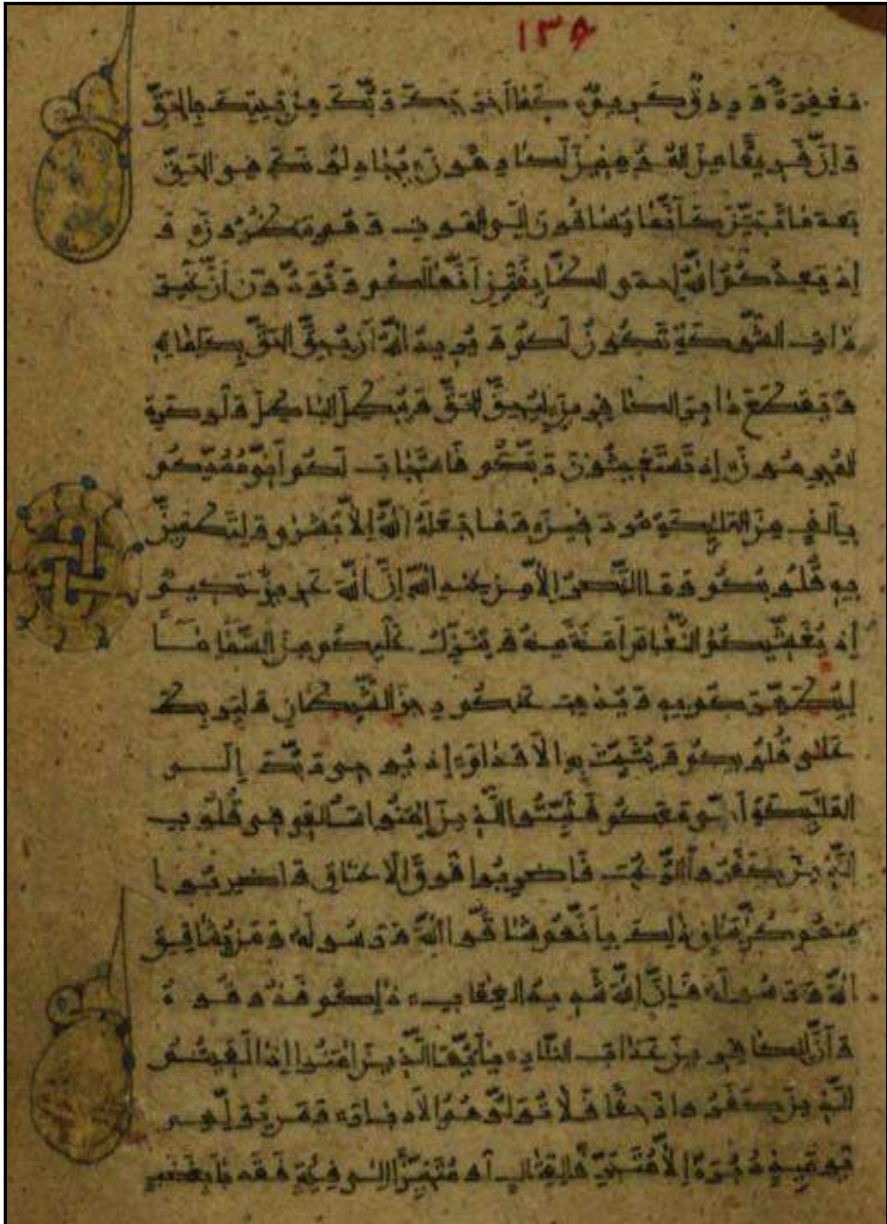 ١٣٥
مَغْفِرَةٌ وَرِزْقٌ كَرِيمٌ كَمَا أَخْرَجَكَ رَبُّكَ مِنْ بَيْتِكَ بِالْحَقِّ
وَإِنَّ فَرِيقًا مِنَ الْمُؤْمِنِينَ لَكَارِهُونَ يُجَادِلُونَكَ فِي الْحَقِّ
بَعْدَ مَا تَبَيَّنَ كَأَنَّمَا يُسَاقُونَ إِلَى الْمَوْتِ وَهُمْ يَنْظُرُونَ وَ
إِذْ يَعِدُكُمُ اللَّهُ إِحْدَى الطَّائِفَتَيْنِ أَنَّهَا لَكُمْ وَتَوَدُّونَ أَنَّ غَيْرَ
ذَاتِ الشَّوْكَةِ تَكُونُ لَكُمْ وَيُرِيدُ اللَّهُ أَنْ يُحِقَّ الْحَقَّ بِكَلِمَاتِهِ
وَيَقْطَعَ دَابِرَ الْكَافِرِينَ لِيُحِقَّ الْحَقَّ وَيُبْطِلَ الْبَاطِلَ وَلَوْ كَرِهَ
الْمُجْرِمُونَ إِذْ تَسْتَغِيثُونَ رَبَّكُمْ فَاسْتَجَابَ لَكُمْ أَنِّي مُمِدُّكُمْ
بِأَلْفٍ مِنَ الْمَلَائِكَةِ مُرْدِفِينَ وَمَا جَعَلَهُ اللَّهُ إِلَّا بُشْرَى وَلِتَطْمَئِنَّ
بِهِ قُلُوبُكُمْ وَمَا النَّصْرُ إِلَّا مِنْ عِنْدِ اللَّهِ إِنَّ اللَّهَ عَزِيزٌ حَكِيمٌ
إِذْ يُغَشِّيكُمُ النُّعَاسَ أَمَنَةً مِنْهُ وَيُنَزِّلُ عَلَيْكُمْ مِنَ السَّمَاءِ مَاءً
لِيُطَهِّرَكُمْ بِهِ وَيُذْهِبَ عَنْكُمْ رِجْزَ الشَّيْطَانِ وَلِيَرْبِطَ
عَلَى قُلُوبِكُمْ وَيُثَبِّتَ بِهِ الْأَقْدَامَ إِذْ يُوحِي رَبُّكَ إِلَى
الْمَلَائِكَةِ أَنِّي مَعَكُمْ فَثَبِّتُوا الَّذِينَ آمَنُوا سَأُلْقِي فِي قُلُوبِ
الَّذِينَ كَفَرُوا الرُّعْبَ فَاضْرِبُوا فَوْقَ الْأَعْنَاقِ وَاضْرِبُوا
مِنْهُمْ كُلَّ بَنَانٍ ذَلِكَ بِأَنَّهُمْ شَاقُّوا اللَّهَ وَرَسُولَهُ وَمَنْ يُشَاقِقِ
اللَّهَ وَرَسُولَهُ فَإِنَّ اللَّهَ شَدِيدُ الْعِقَابِ ذَلِكُمْ فَذُوقُوهُ
وَأَنَّ لِلْكَافِرِينَ عَذَابَ النَّارِ يَا أَيُّهَا الَّذِينَ آمَنُوا إِذَا لَقِيتُمُ
الَّذِينَ كَفَرُوا زَحْفًا فَلَا تُوَلُّوهُمُ الْأَدْبَارَ وَمَنْ يُوَلِّهِمْ
يَوْمَئِذٍ دُبُرَهُ إِلَّا مُتَحَرِّفًا لِقِتَالٍ أَوْ مُتَحَيِّزًا إِلَى فِئَةٍ فَقَدْ بَاءَ بِغَضَبٍ